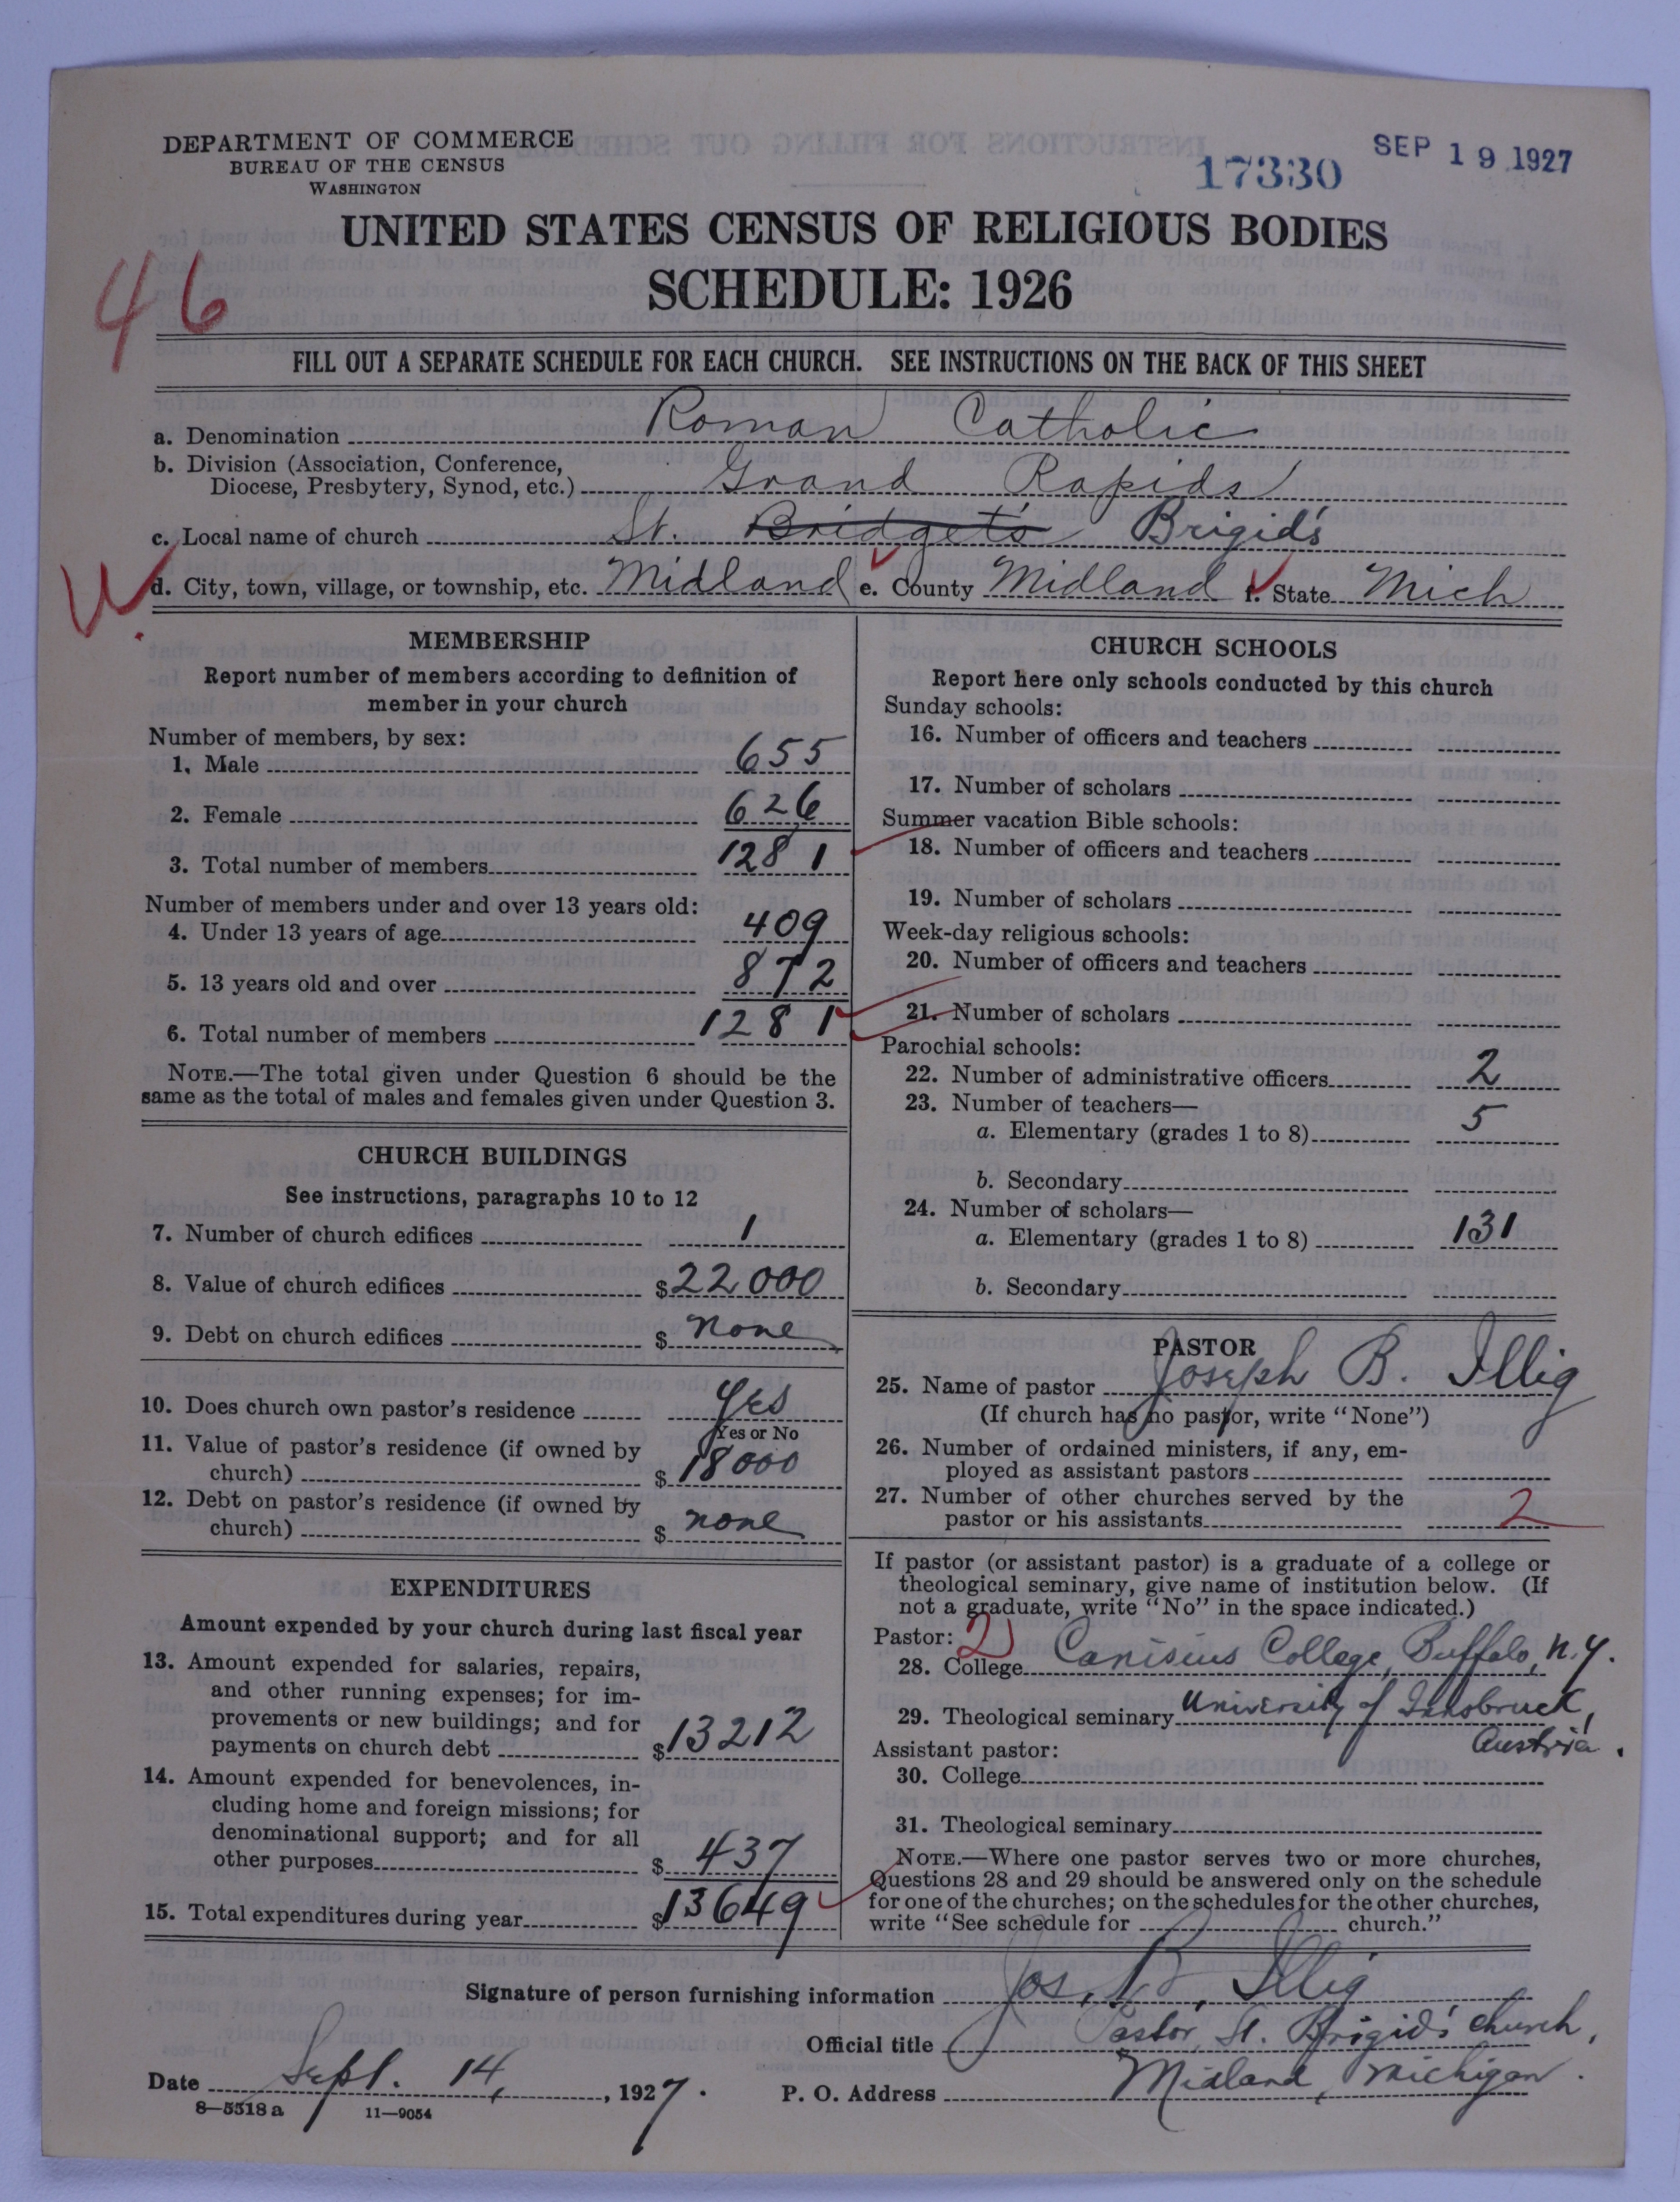 DEPARTMENT OF COMMERCE
BUREAU OF THE CENSUS
WASHINGTON
17330
SEP 19 1927
UNITED STATES CENSUS OF RELIGIOUS BODIES
SCHEDULE: 1926
46
FILL OUT A SEPARATE SCHEDULE FOR EACH CHURCH. SEE INSTRUCTIONS ON THE BACK OF THIS SHEET
a. Denomination Roman Catholic
b. Division (Association, Conference,
Diocese, Presbytery, Synod, etc.) Grand Rapids
c. Local name of church St. Bridget's Brigid's
W
d. City, town, village, or township, etc. Midland e. County Midland f. State Mich
MEMBERSHIP
Report number of members according to definition of
member in your church
Number of members, by sex:
1. Male 655
2. Female 626
3. Total number of members 1281
Number of members under and over 13 years old:
4. Under 13 years of age 409
5. 13 years old and over 872
6. Total number of members 1281
NOTE.—The total given under Question 6 should be the
same as the total of males and females given under Question 3.
CHURCH BUILDINGS
See instructions, paragraphs 10 to 12
7. Number of church edifices 1
8. Value of church edifices $22000
9. Debt on church edifices $ none
10. Does church own pastor's residence Yes
Yes or No
11. Value of pastor's residence (if owned by
church) $18000
12. Debt on pastor's residence (if owned by
church) $ none
EXPENDITURES
Amount expended by your church during last fiscal year
13. Amount expended for salaries, repairs,
and other running expenses; for im-
provements or new buildings; and for
payments on church debt $13212
14. Amount expended for benevolences, in-
cluding home and foreign missions; for
denominational support; and for all
other purposes $437
15. Total expenditures during year $13649
CHURCH SCHOOLS
Report here only schools conducted by this church
Sunday schools:
16. Number of officers and teachers
17. Number of scholars
Summer vacation Bible schools:
18. Number of officers and teachers
19. Number of scholars
Week-day religious schools:
20. Number of officers and teachers
21. Number of scholars
Parochial schools:
22. Number of administrative officers 2
23. Number of teachers—
a. Elementary (grades 1 to 8) 5
b. Secondary
24. Number of scholars—
a. Elementary (grades 1 to 8) 131
b. Secondary
PASTOR
25. Name of pastor Joseph B. Illig
(If church has no pastor, write "None")
26. Number of ordained ministers, if any, em-
ployed as assistant pastors
27. Number of other churches served by the
pastor or his assistants 2
If pastor (or assistant pastor) is a graduate of a college or
theological seminary, give name of institution below. (If
not a graduate, write "No" in the space indicated.)
Pastor: 2
28. College Canisius College, Buffalo, N.Y.
29. Theological seminary University of Innsbruck,
Austria.
Assistant pastor:
30. College
31. Theological seminary
NOTE.—Where one pastor serves two or more churches,
Questions 28 and 29 should be answered only on the schedule
for one of the churches; on the schedules for the other churches,
write "See schedule for church."
Signature of person furnishing information Jos. B. Illig
Official title Pastor, St. Brigid's church,
Date Sept. 14, 1927. P. O. Address Midland, Michigan.
8—5518 a 11—9054